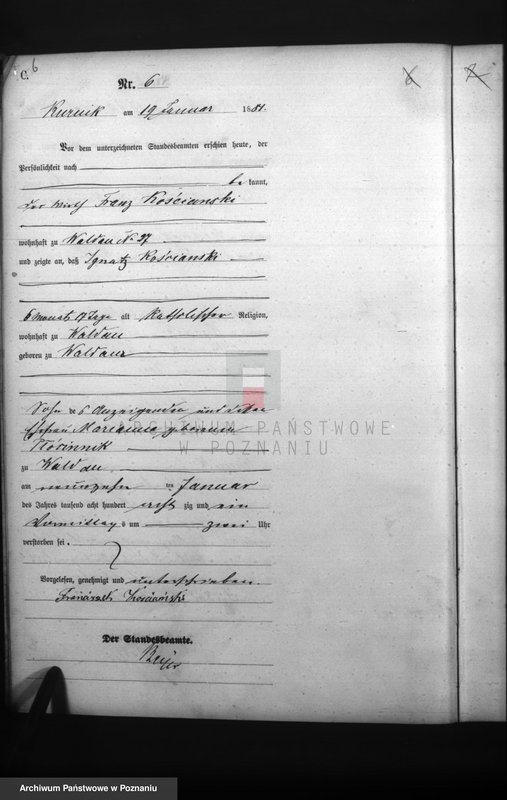 C. 6
6 7
Nr. 6
Kurnik am 19 Januar 1881.
Vor dem unterzeichneten Standesbeamten erschien heute, der
Persönlichkeit nach
be kannt,
der Wirth Franz Kościanski
wohnhaft zu Waldau No 27
und zeigte an, daß Ignatz Kościanski
6 Monat 17 Tage alt katholischer Religion,
wohnhaft zu Waldau
geboren zu Waldau
Sohn des Anzeigenden und dessen
Ehefrau Marianna geborenen
ARCHIWUM PAŃSTWOWE
W POZNANIU
zu Waldau
am neunzehnten Januar
des Jahres tausend acht hundert achtzig und ein
Vormittags um zwei Uhr
verstorben sei.
Vorgelesen, genehmigt und unterschrieben.
Der Standesbeamte.
Archiwum Państwowe w Poznaniu